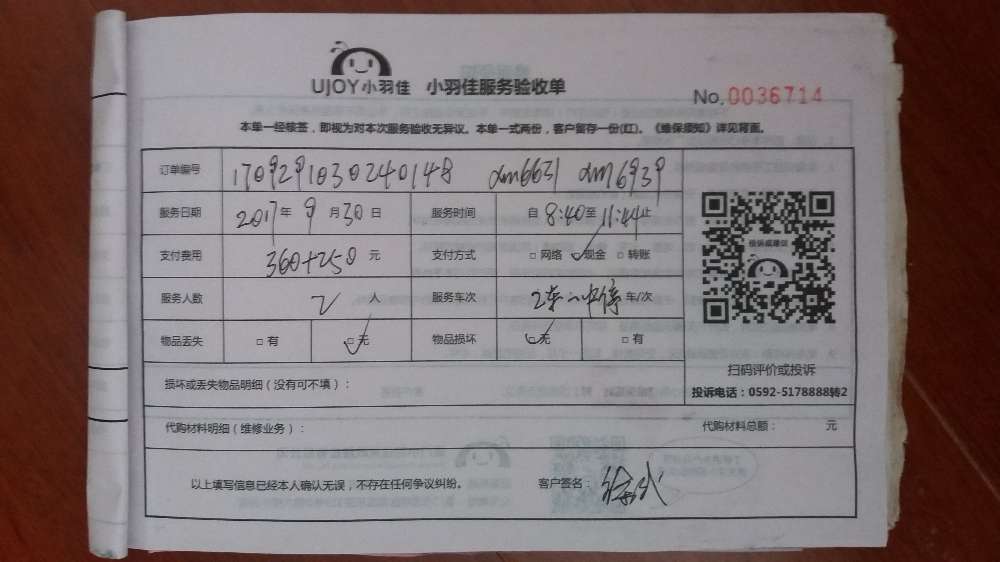 UJOY小羽佳 小羽佳服务验收单
No.0036714
本单一经核签，即视为对本次服务验收无异议。本单一式两份，客户留存一份(红)。《维保须知》详见背面。
订单编号 1709291030240148 dm6631 dm6939
服务日期 2017年9月30日 服务时间 自8:40至11:44止
支付费用 360+250元 支付方式 □网络 ☑现金 □转账
服务人数 2人 服务车次 2车 车/次
物品丢失 □有 ☑无 物品损坏 ☑无 □有
投诉或建议
扫码评价或投诉
投诉电话：0592-5178888转2
损坏或丢失物品明细（没有可不填）：
代购材料明细（维修业务）： 代购材料总额： 元
以上填写信息已经本人确认无误，不存在任何争议纠纷。 客户签名：